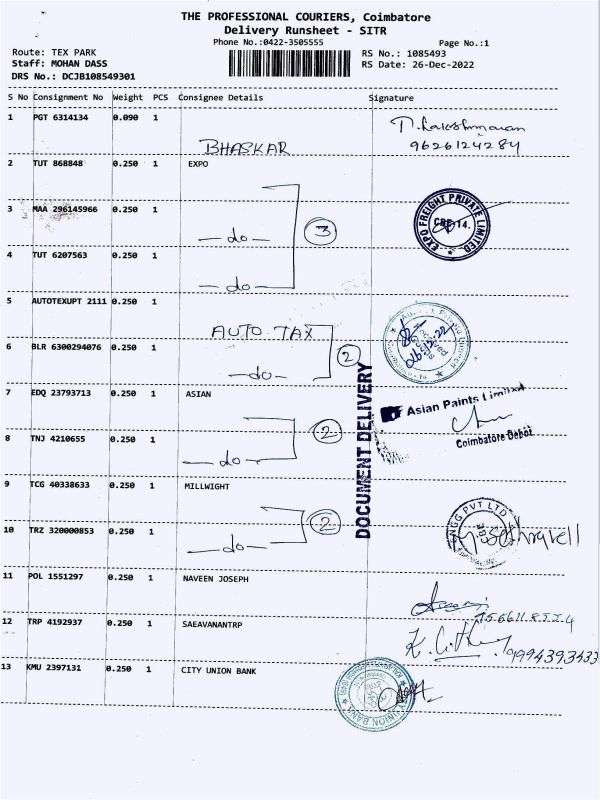 THE PROFESSIONAL COURIERS, Coimbatore
Delivery Runsheet - SITR
Phone No.:0422-3505555 Page No.:1
Route: TEX PARK RS No.: 1085493
Staff: MOHAN DASS RS Date: 26-Dec-2022
DRS No.: DCJB108549301
S No Consignment No Weight PCS Consignee Details Signature
1 PGT 6314134 0.090 1
BHASKAR 9626124284
2 TUT 868848 0.250 1 EXPO
3 MAA 296145966 0.250 1
—do— 3
EXPO FREIGHT PRIVATE LIMITED
4 TUT 6207563 0.250 1
—do—
5 AUTOTEXUPT 2111 0.250 1
AUTO TAX
6 BLR 6300294076 0.250 1
—do— 2
26-12-22
7 EDQ 23793713 0.250 1 ASIAN
Asian Paints Limited
Coimbatore Depot
DOCUMENT DELIVERY
2
8 TNJ 4210655 0.250 1
—do—
9 TCG 40338633 0.250 1 MILLWIGHT
2
10 TRZ 320000853 0.250 1
—do—
11 POL 1551297 0.250 1 NAVEEN JOSEPH
12 TRP 4192937 0.250 1 SAEAVANANTRP
9994393433
13 KMU 2397131 0.250 1 CITY UNION BANK